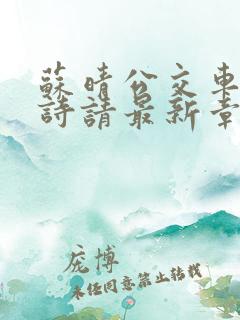 蘇晴公交車
詩請最新章
庞博
未经同意禁止转载